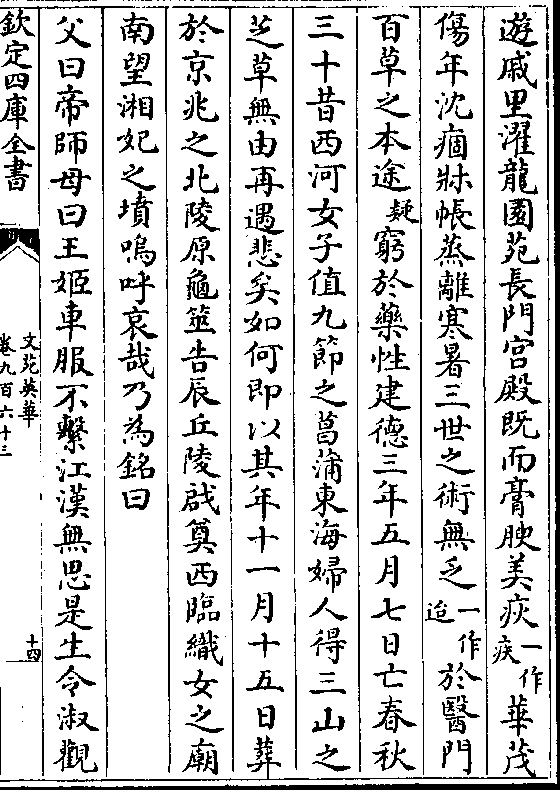 遊戚里濯龍園苑長門宮殿既而膏腴美疢一作疾華茂
傷年沈痼牀帳蒸離寒暑三世之術無乏一作迨於醫門
百草之本途疑窮於藥性建德三年五月七日亡春秋
三十昔西河女子值九節之菖蒲東海婦人得三山之
芝草無由再遇悲矣如何即以其年十一月十五日葬
於京兆之北陵原龜筮告辰丘陵戒奠西臨織女之廟
南望湘妃之墳嗚呼哀哉乃為銘曰
父曰帝師母曰王姬車服不繫江漢無思是生令淑觀
欽定四庫全書
文苑英華
卷九百六十三
十四